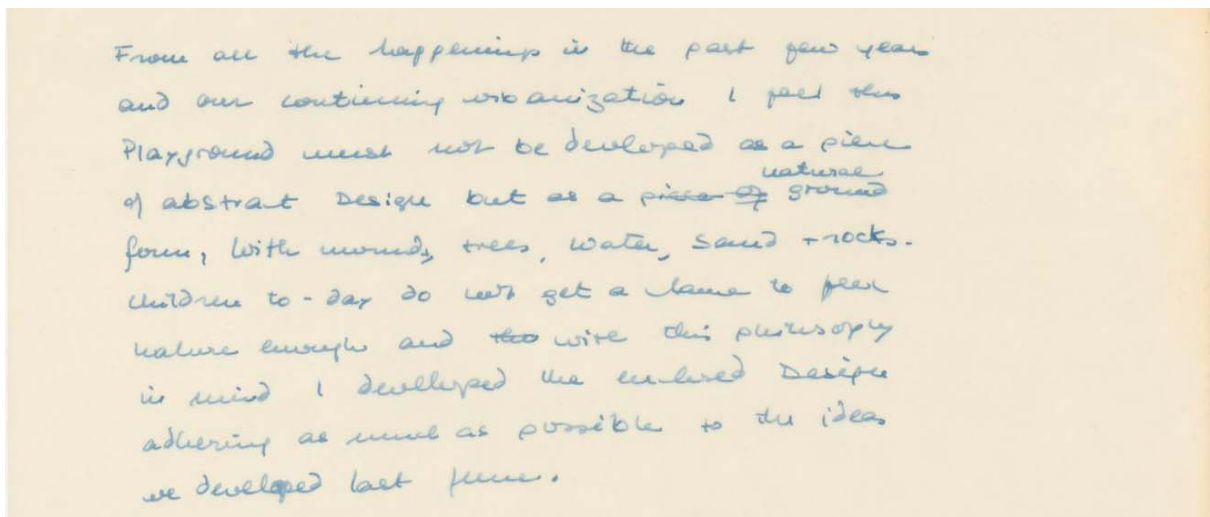 From all the happenings in the past few years
and our continuing urbanization I feel this
Playground must not be developed as a piece
of abstract Design but as a piece of natural ground
form, with mounds, trees, water, sand + rocks.
children to-day do not get a chance to feel
nature enough and tho with this philosophy
in mind I developed the enclosed Design
adhering as much as possible to the ideas
we developed last June.